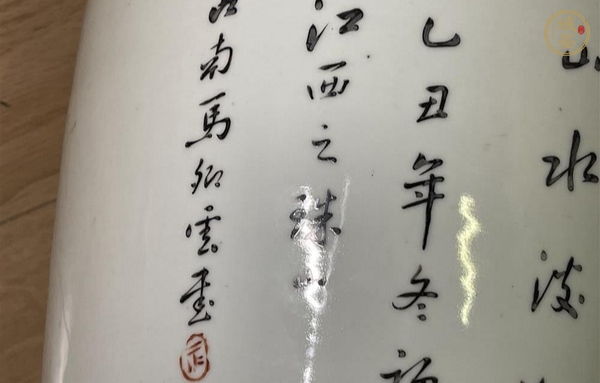 山水波
乙丑年冬
江西之珠山
南馬卿雲畫